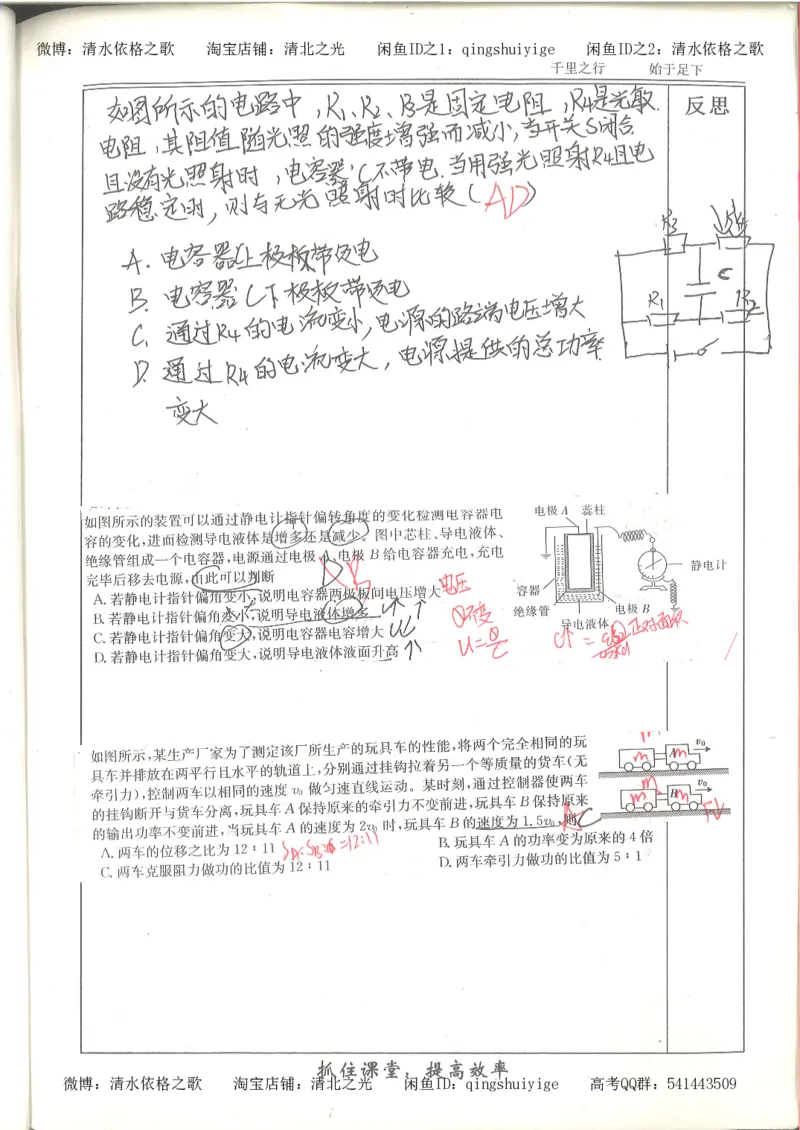 微博：清水依格之歌 淘宝店铺：清北之光 闲鱼ID之1：qingshuiyige 闲鱼ID之2：清水依格之歌
千里之行 始于足下
反思
如图所示的电路中，R1、R2、R3是固定电阻，R4是光敏
电阻，其阻值随光照的强度增强而减小，当开关S闭合
且没有光照射时，电容器C不带电．当用强光照射R4且电
路稳定时，则与无光照射时比较（AD）
A. 电容器上极板带负电
B. 电容器C下极板带负电
C. 通过R4的电流变小，电源的路端电压增大
D. 通过R4的电流变大，电源提供的总功率
变大
R3 R4
C
R1 R2
如图所示的装置可以通过静电计指针偏转角度的变化检测电容器电
容的变化,进而检测导电液体是增多还是减少。图中芯柱、导电液体、
绝缘管组成一个电容器,电源通过电极A、电极B给电容器充电,充电
完毕后移去电源,由此可以判断
A. 若静电计指针偏角变小,说明电容器两极板间电压增大 电压
B. 若静电计指针偏角变小,说明导电液体增多
C. 若静电计指针偏角变大,说明电容器电容增大
D. 若静电计指针偏角变大,说明导电液体液面升高
电极A 芯柱
静电计
容器
绝缘管 电极B
导电液体
Q不变
U=Q/C
C↑ = 正对面积
如图所示,某生产厂家为了测定该厂所生产的玩具车的性能,将两个完全相同的玩
具车并排放在两平行且水平的轨道上,分别通过挂钩拉着另一个等质量的货车(无
牵引力),控制两车以相同的速度v0做匀速直线运动。某时刻,通过控制器使两车
的挂钩断开与货车分离,玩具车A保持原来的牵引力不变前进,玩具车B保持原来
的输出功率不变前进,当玩具车A的速度为2v0时,玩具车B的速度为1.5v0,则 AC
A. 两车的位移之比为12：11 B. 玩具车A的功率变为原来的4倍
C. 两车克服阻力做功的比值为12：11 D. 两车牵引力做功的比值为5：1
m m v0
m m B v0
抓住课堂，提高效率
微博：清水依格之歌 淘宝店铺：清北之光 闲鱼ID：qingshuiyige 高考QQ群：541443509